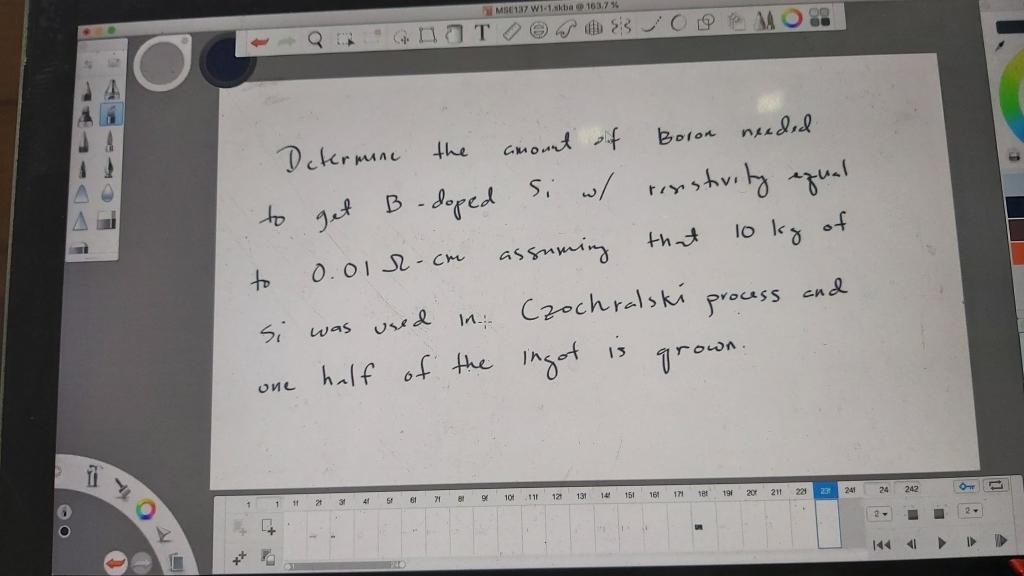 MSE137 W1-1.skba @ 163.7 %
T
Determine the amount of Boron needed
to get B-doped Si w/ resistivity equal
to 0.01 Ω-cm assuming that 10 kg of
Si was used in Czochralski process and
one half of the ingot is grown.
1 1 1f 2f 3f 4f 5f 6f 7f 8f 9f 10f 11f 12f 13f 14f 15f 16f 17f 18f 19f 20f 21f 22f 23f 24f 24 242
2 2